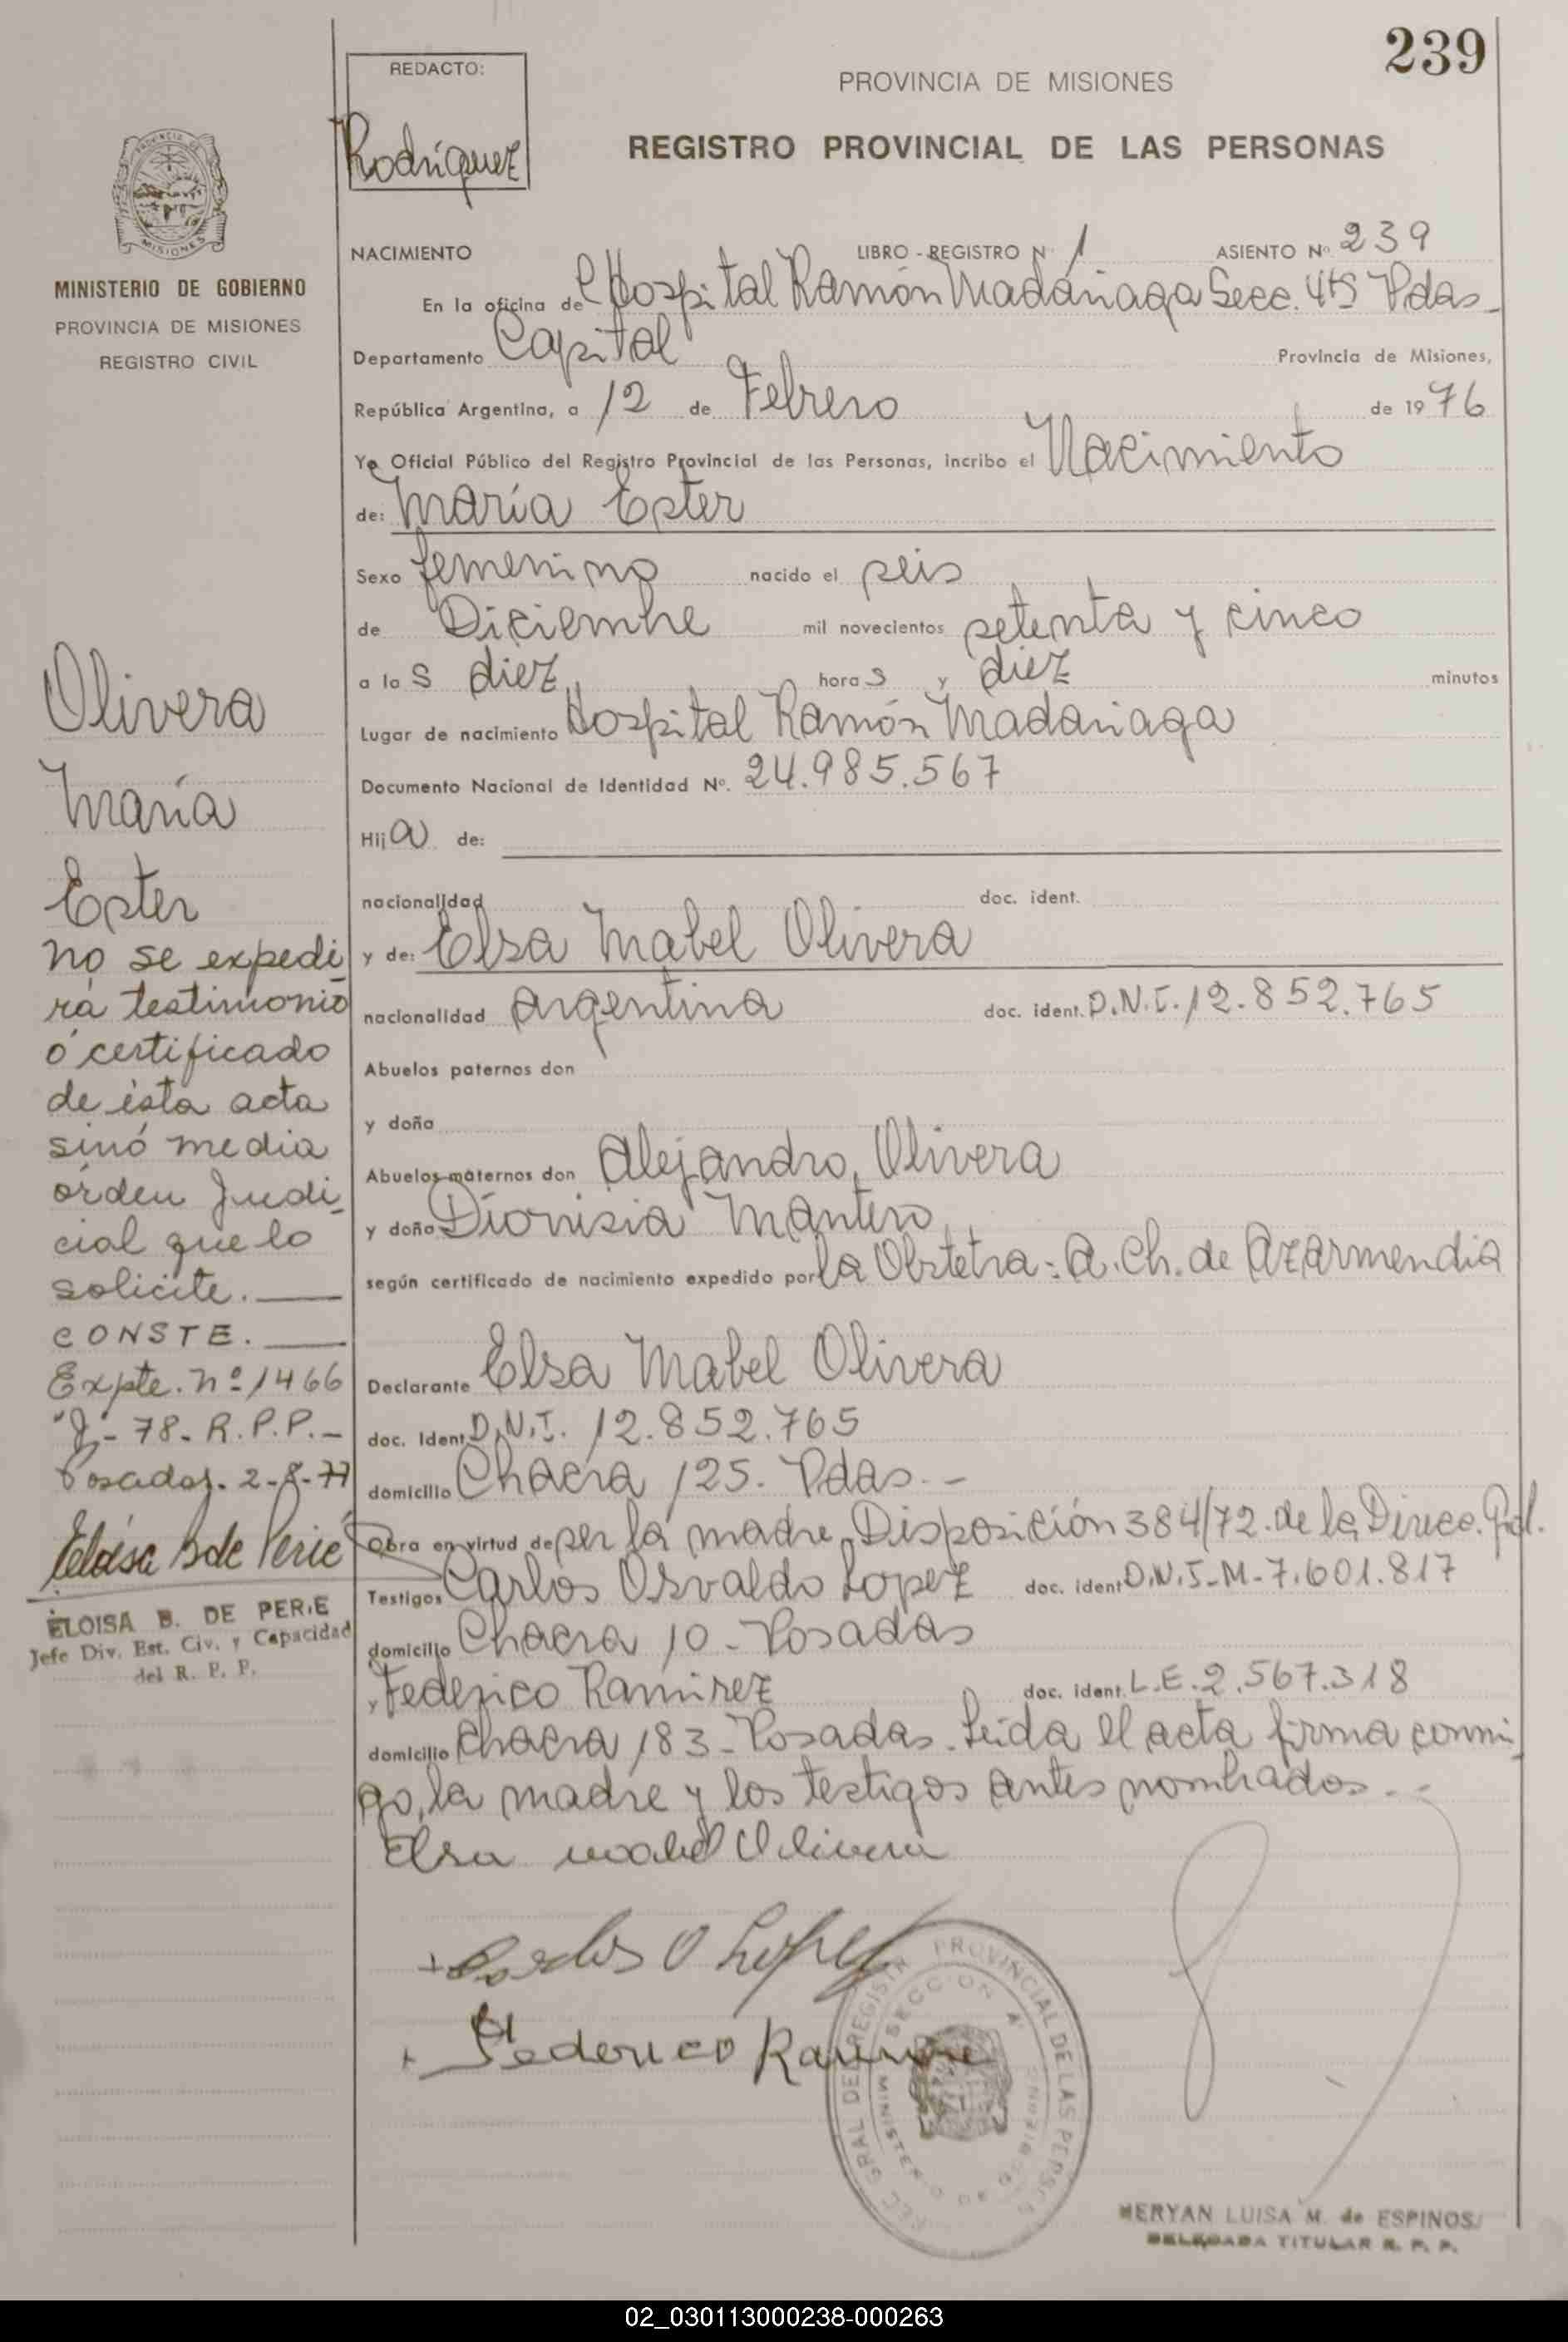 239
REDACTO:
Rodríguez
PROVINCIA DE MISIONES
REGISTRO PROVINCIAL DE LAS PERSONAS
PROVINCIA DE
MISIONES
MINISTERIO DE GOBIERNO
PROVINCIA DE MISIONES
REGISTRO CIVIL
NACIMIENTO LIBRO - REGISTRO Nº 1 ASIENTO Nº 239
En la oficina del Hospital Ramón Madariaga Secc. Pdas
Departamento Capital Provincia de Misiones,
República Argentina, a 12 de Febrero de 1976
Yo Oficial Público del Registro Provincial de las Personas, incribo el Nacimiento
de: María Ester
Sexo femenino nacido el seis
de Diciembre mil novecientos setenta y cinco
a las diez horas y diez minutos
Lugar de nacimiento Hospital Ramón Madariaga
Documento Nacional de Identidad Nº. 24.985.567
Hija de:
nacionalidad doc. ident.
y de: Elsa Mabel Olivera
nacionalidad argentina doc. ident. D.N.I. 12.852.765
Abuelos paternos don
y doña
Abuelos maternos don Alejandro, Olivera
y doña Dionisia Mantero
según certificado de nacimiento expedido por la Obstetra: A. Ch. de Azarmendia
Declarante Elsa Mabel Olivera
doc. Ident. D.N.I. 12.852.765
domicilio Chacra 125. Pdas.-
Obra en virtud de ser la madre, Disposición 384/72. de la Direcc. Gral.
Testigos Carlos Osvaldo Lopez doc. ident D.N.I-M-7.601.817
domicilio Chacra 10- Posadas
y Federico Ramirez doc. ident. L.E. 2.567.318
domicilio Chacra 183- Posadas. Leida el acta firma conmi
go, la madre y los testigos antes nombrados.-
Elsa Mabel Olivera
+ Carlos O Lopez
+ Federico Ramirez
Olivera
María
Ester
no se expedi
rá testimonio
ó certificado
de ésta acta
sinó media
órden Judi
cial que lo
solicite.
CONSTE.
Expte. nº 1466
78- R.P.P.-
Posadas. 2-8-77
Eloisa B de Perie
ELOISA B. DE PERIE
Jefe Div. Est. Civ. y Capacidad
del R. P. P.
GRAL DEL REGISTRO PROVINCIAL DE LAS PERSONAS
SECCION
MINISTERIO DE GOBIERNO
MERYAN LUISA M. de ESPINOSA
DELEGADA TITULAR R. P. P.
02_030113000238-000263